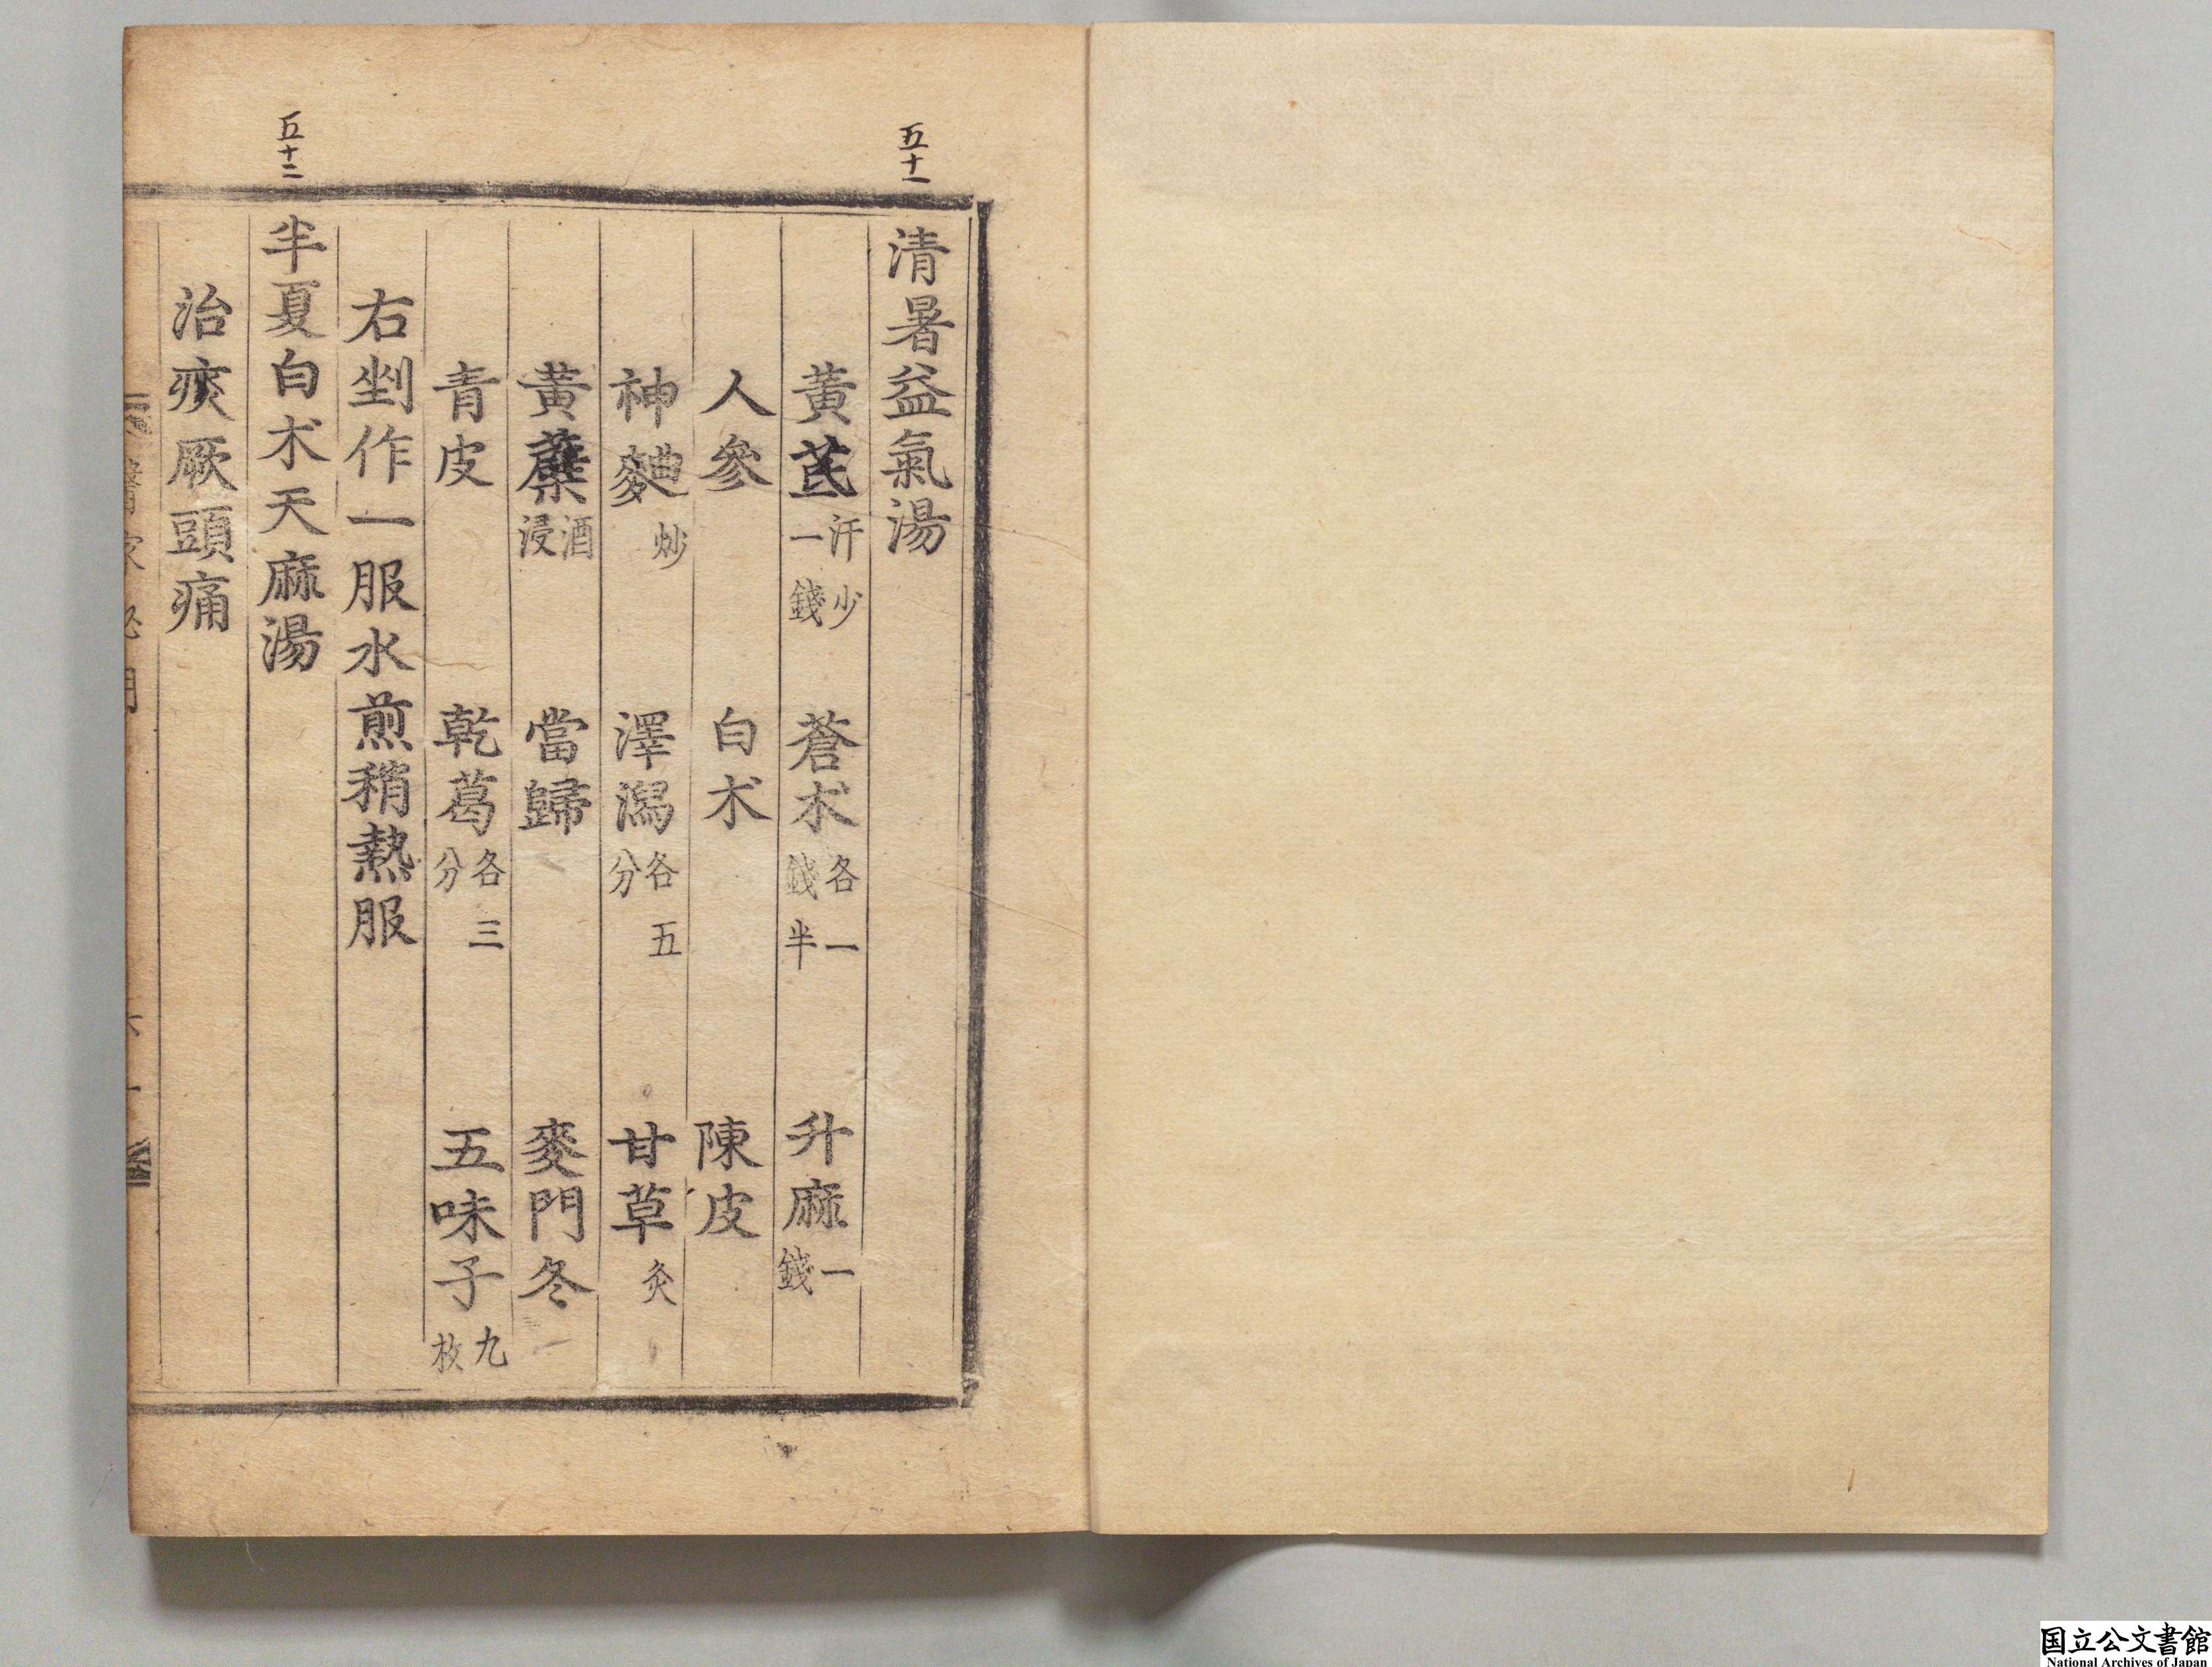 五十一
清暑益氣湯
黃芪汗少一錢 蒼朮各一錢半 升麻一錢
人參 白朮 陳皮
神麯炒 澤瀉各五分 甘草炙
黃蘗酒浸 當歸 麥門冬
青皮 乾葛各三分 五味子九枚
右剉作一服水煎稍熱服
五十二
半夏白朮天麻湯
治痰厥頭痛
国立公文書館
National Archives of Japan